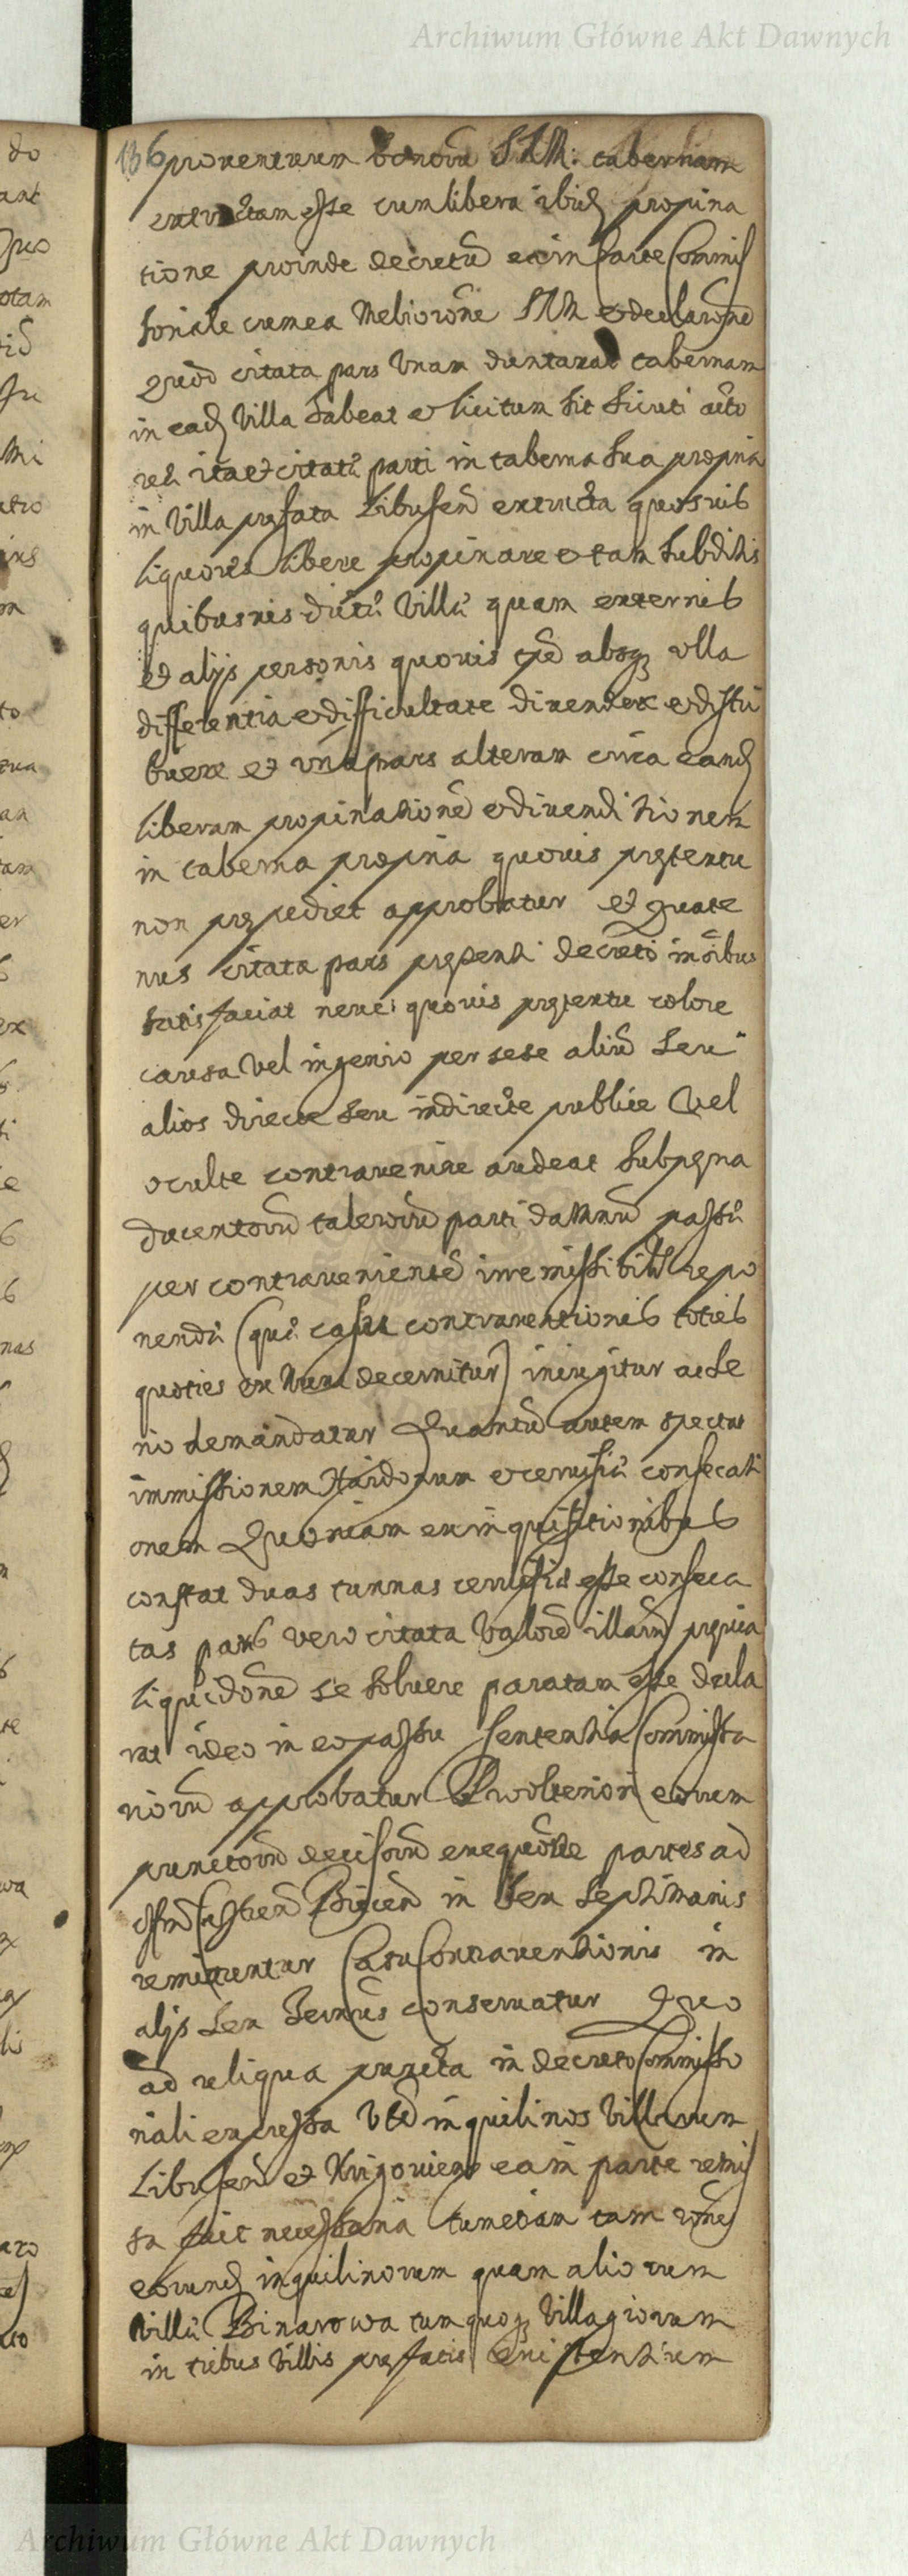 Archiwum Główne Akt Dawnych
136 prouentuum bonorũ SRM: tabernam
extructam esse cum libera ibid propina
tione proinde decretũ ea in parte Commis
soriale cum ea melioroñe SRM et declaroñe
Quod citata pars Vnam duntaxat tabernam
in ead Villa habeat et licitum sit sicuti acto
rea ita et citatæ parti in taberna sua propria
in Villa præfata Libuseñ extructa quosuis
liquores libere propinare et tam subditis
quibusuis dictæ Villæ quam externis
et alijs personis quouis absq vlla
differentia et difficultate diuendere et distri
buere et vna pars alteram circa eand
liberam propinationẽ et diuenditionem
in taberna propria quouis prætextu
non præpediet approbatur et Quate
nus citata pars præsenti decreto in oĩbus
satisfaciat neue quouis prætextu colore
causa Vel ingenio per sese aliũ seu
alios directe seu indirecte publice Vel
oculte contrauenire audeat sub pæna
ducentorũ talerorũ parti damnũ passæ
per contrauenientẽ irremissibilr repo
nenda (quæ casu contrauentionis toties
quoties ex nunc decernitur) iniugitur ac se
rio demandatur Quantũ autem spectat
immissionem Haidonum et ceruisiæ confecati
onem Quoniam ex inquisitionibus
constat duas tunnas ceruisiæ esse confeca
tas pars vero citata Valorẽ illarũ præuia
liquidoñe se soluere paratam esse decla
rat ideo in eo passu Sententia Commissa
riorũ approbatur Pro vlteriori eorum
punctorũ decisorũ exequoñe partes ad
offm Castreñ Bieceñ in sex septimanis
remittuntur Casu Contrauentionis in
alijs sex Terminus conseruatur Quo
ad reliqua puncta in decreto Commisso
riali expressa Vtd inquilinos Villarum
Libuseñ et Krigouieñ ea in parte remis
sa fuit necessaria tum etiam tam roñe
eorund inquilinorum quam aliorum
Villæ Binarowa tum quoq Villagiorum
in tribus Villis præfatis existentium
Archiwum Główne Akt Dawnych